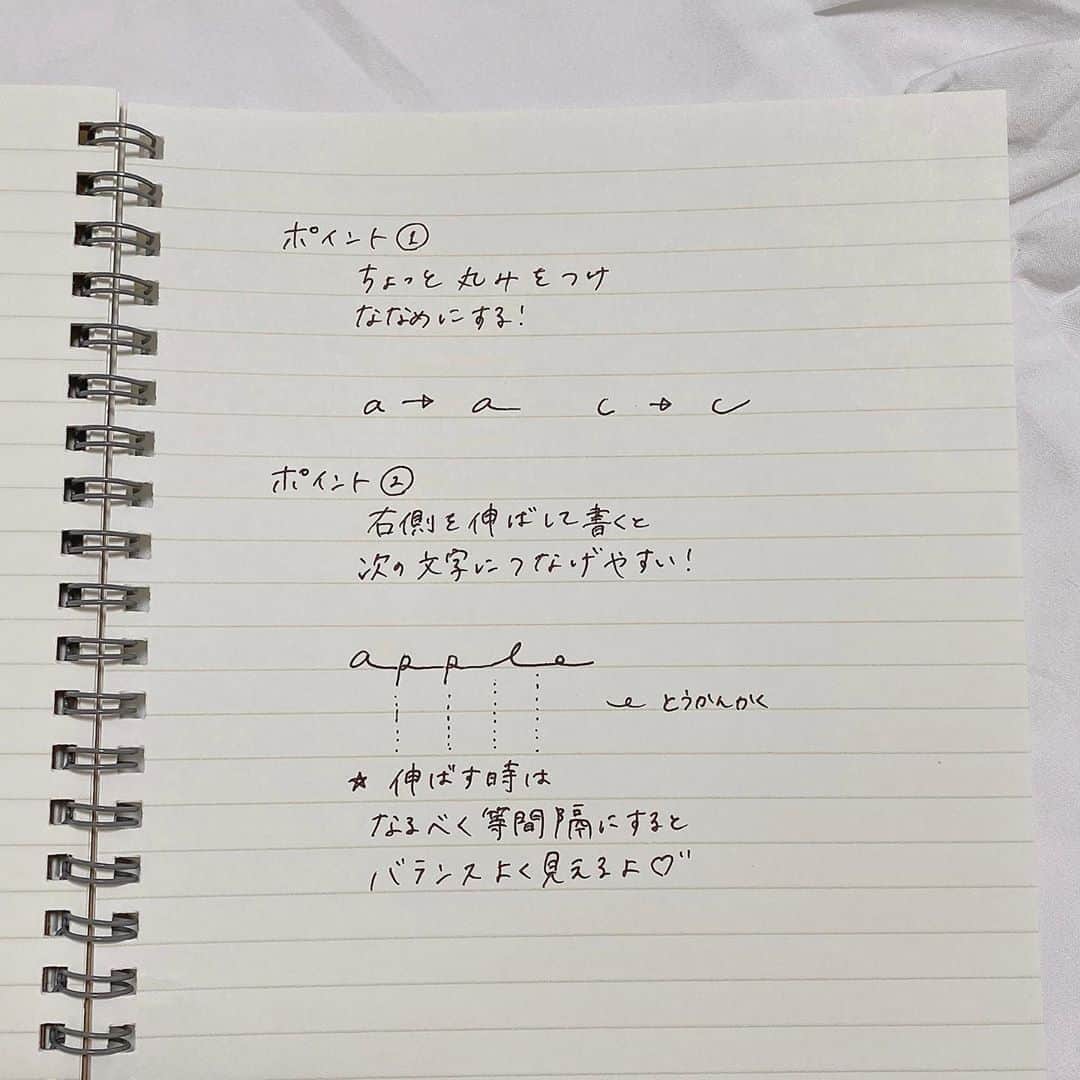 ポイント①
ちょっと丸みをつけ
ななめにする!
a → a c → c
ポイント②
右側を伸ばして書くと
次の文字につなげやすい!
apple
とうかんかく
☆ 伸ばす時は
なるべく等間隔にすると
バランスよく見えるよ♡゛